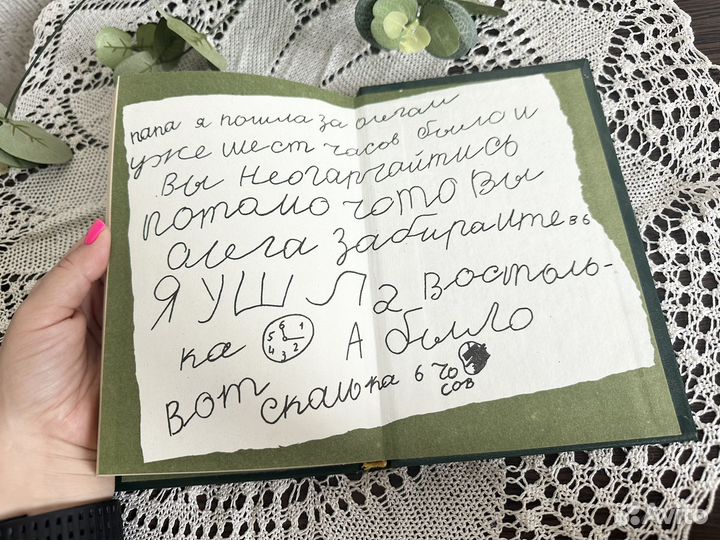 папа я пошла за олегам
уже шест часов было и
вы неогарчайтись
потамо чото вы
алега забираите в 6
Я УШЛа востоль-
ка 6 1 2 3 4 5 А было
вот скалька 6 ча
сов
Avito